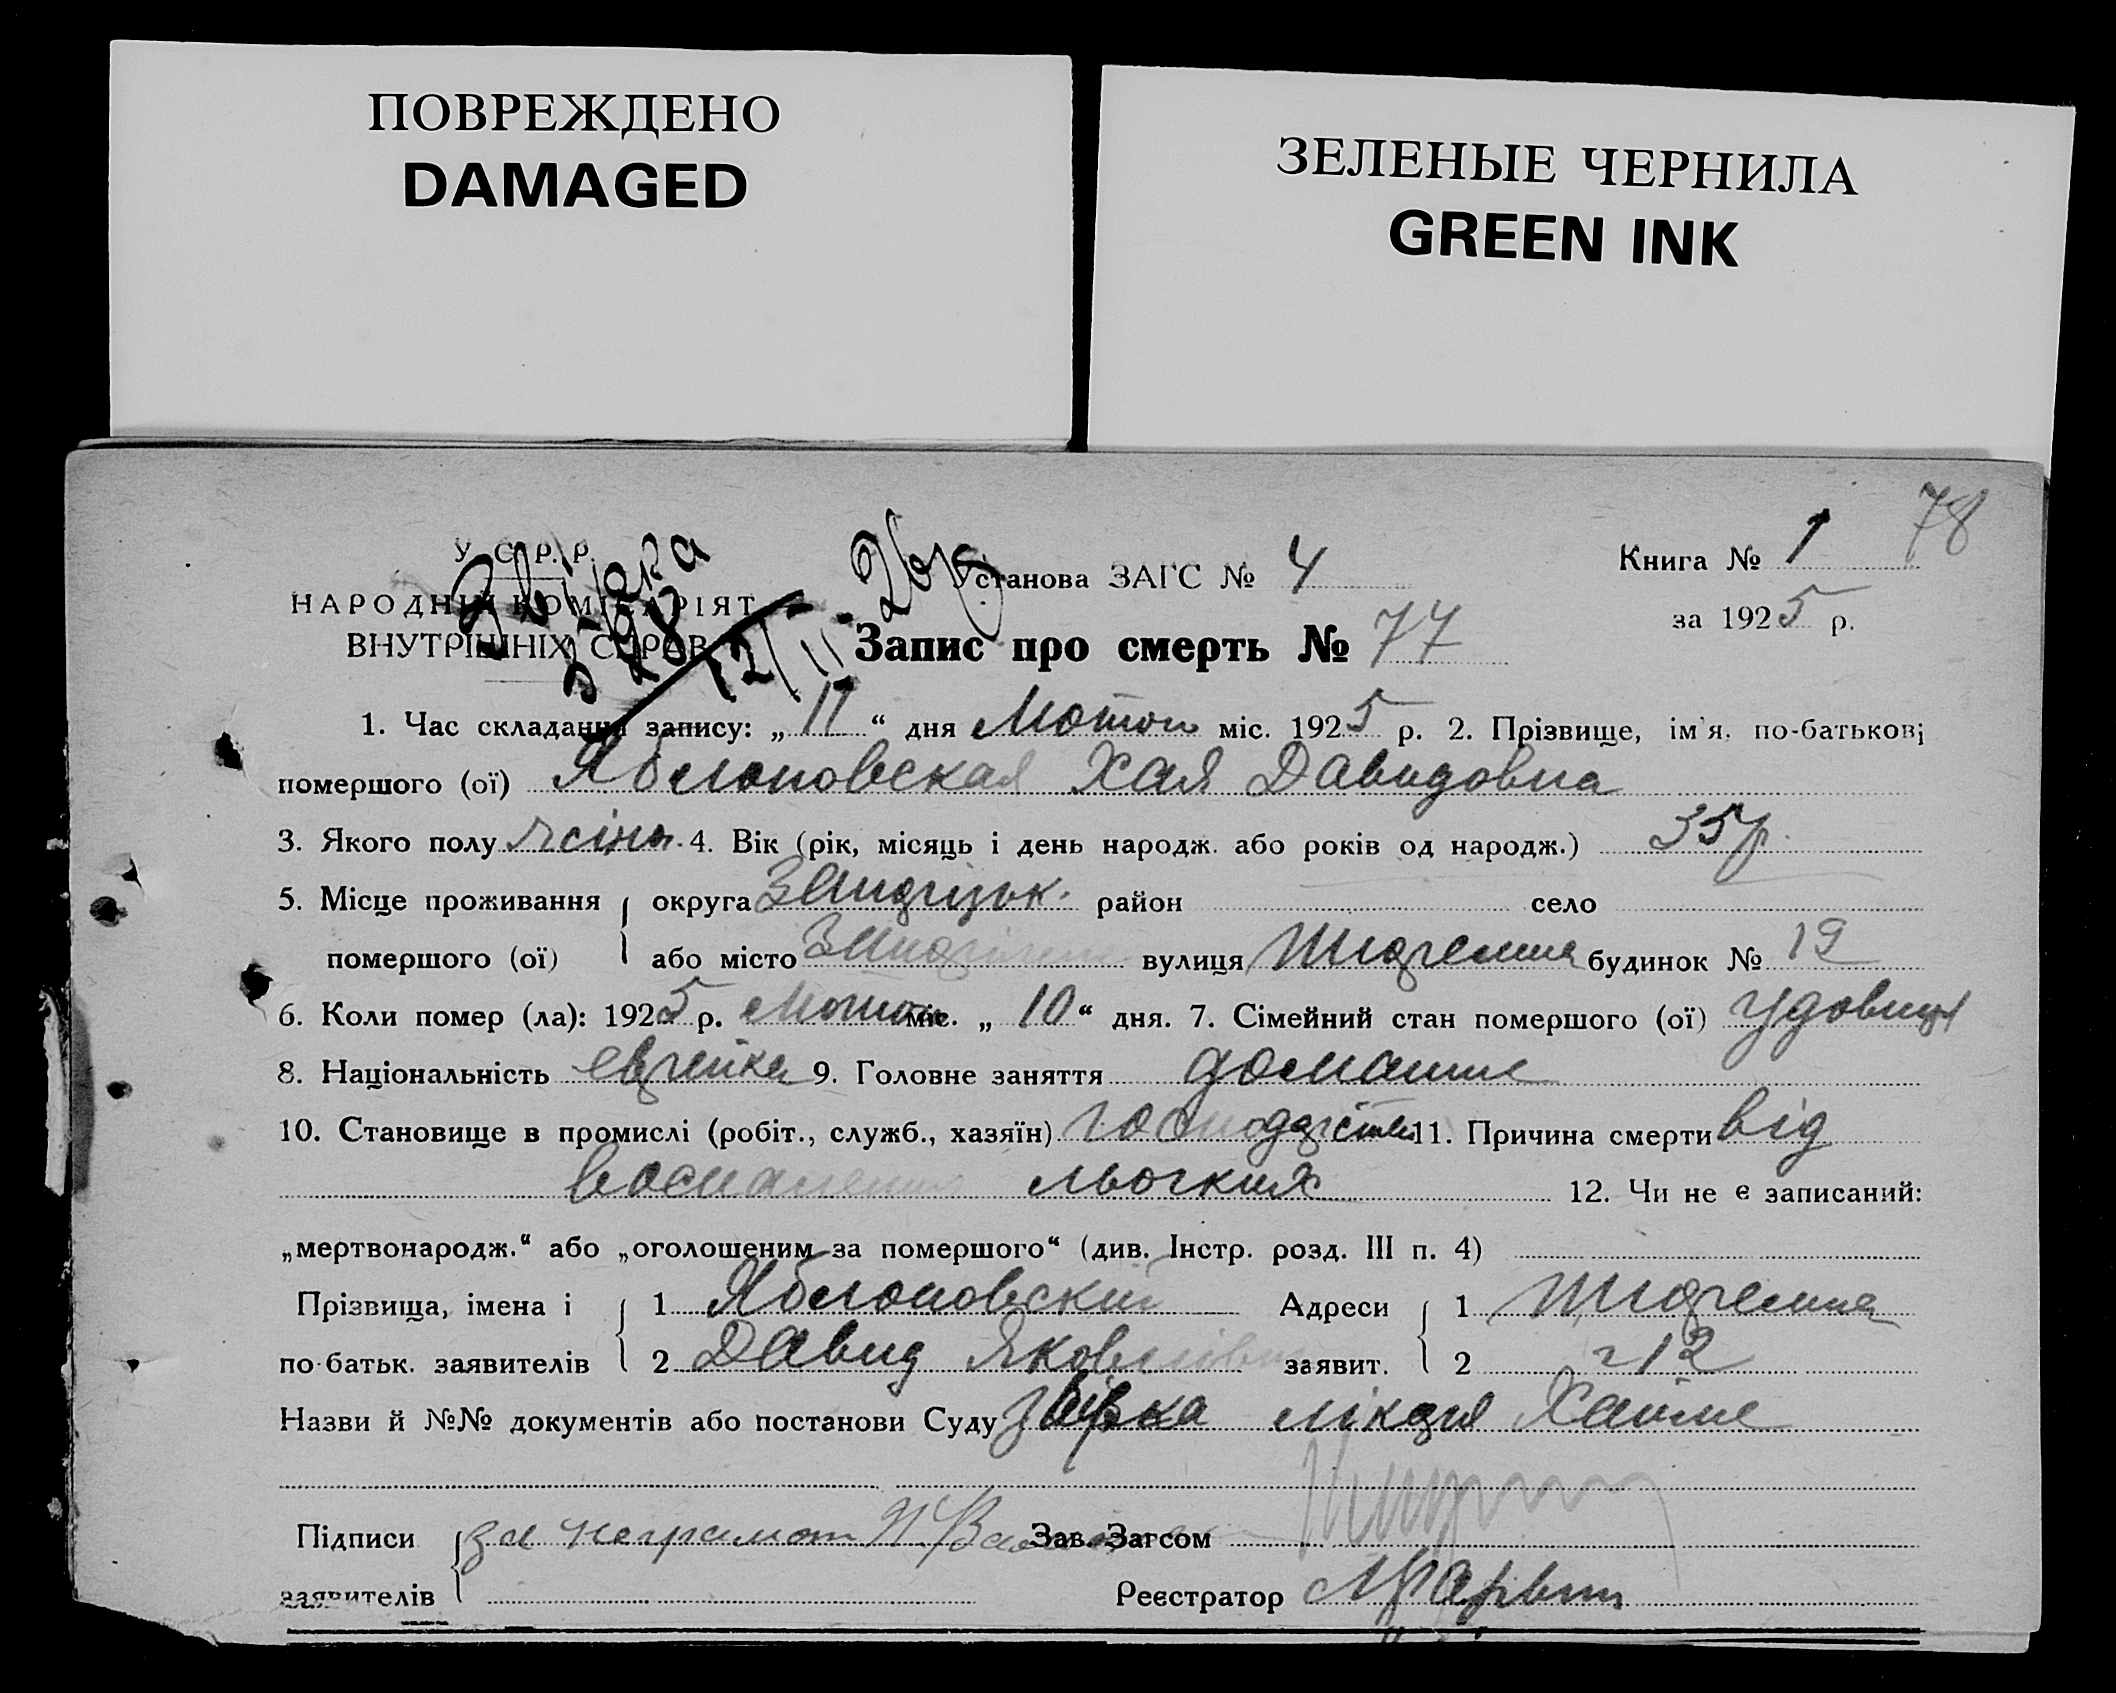 ПОВРЕЖДЕНО
DAMAGED
ЗЕЛЕНЫЕ ЧЕРНИЛА
GREEN INK
78
У. С. Р. Р.
НАРОДНІЙ КОМІСАРІЯТ
ВНУТРІШНІХ СПРАВ
12/II-26р.
Установа ЗАГС № 4
Книга № 1
за 1925 р.
Запис про смерть № 77
1. Час складання запису: „ 11 “ дня Лютого міс. 1925 р. 2. Прізвище, ім'я, по-батькові
помершого (ої) Яблоновская Хая Давидовна
3. Якого полу жіноч. 4. Вік (рік, місяць і день народж. або років од народж.) 35 р.
5. Місце проживання округа район село
помершого (ої) або місто вулиця будинок № 19
6. Коли помер (ла): 1925 р. Лютого міс. „ 10 “ дня. 7. Сімейний стан помершого (ої) удовиця
8. Національність еврейка 9. Головне заняття домашне
10. Становище в промислі (робіт., служб., хазяїн) господарство 11. Причина смерти від
воспаления льогких 12. Чи не є записаний:
„мертвонародж.“ або „оголошеним за помершого“ (див. Інстр. розд. III п. 4)
Прізвища, імена і 1 Яблоновский Адреси 1
по-батьк. заявителів 2 Давид Яковлевич заявит. 2 12
Назви й №№ документів або постанови Суду лікаря
Підписи за неграмотн Зав. Загсом
заявителів Реєстратор